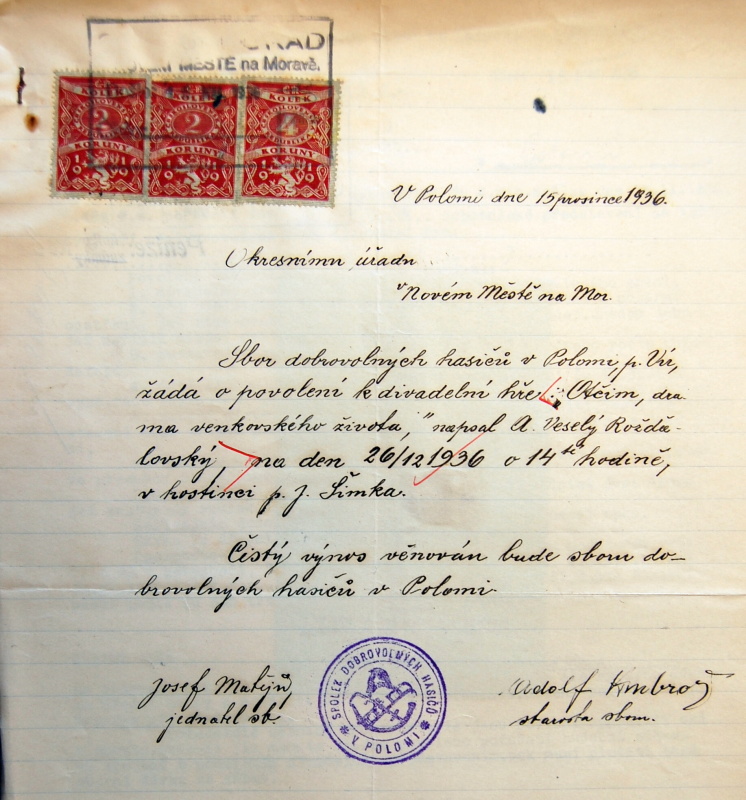 ÚŘAD
MĚSTĚ na Moravě.
KOLEK
KOLEK
KOLEK
2
2
4
KORUNY
KORUNY
KORUNY
1919
1919
1919
V Polomi dne 15 prosince 1936.
Okresnímu úřadu
v Novém Městě na Mor.
Sbor dobrovolných hasičů v Polomi, p. Vír,
žádá o povolení k divadelní hře: „Otčim, dra
ma venkovského života," napsal A. Veselý Rožďa-
lovský, na den 26/12 1936 o 14té hodině,
v hostinci p. J. Šimka.
Čistý výnos věnován bude sboru do-
brovolných hasičů v Polomi.
Josef Matějů,
jednatel sb.
SPOLEK DOBROVOLNÝCH HASIČŮ
V POLOMI
Adolf Ambrož
starosta sboru.